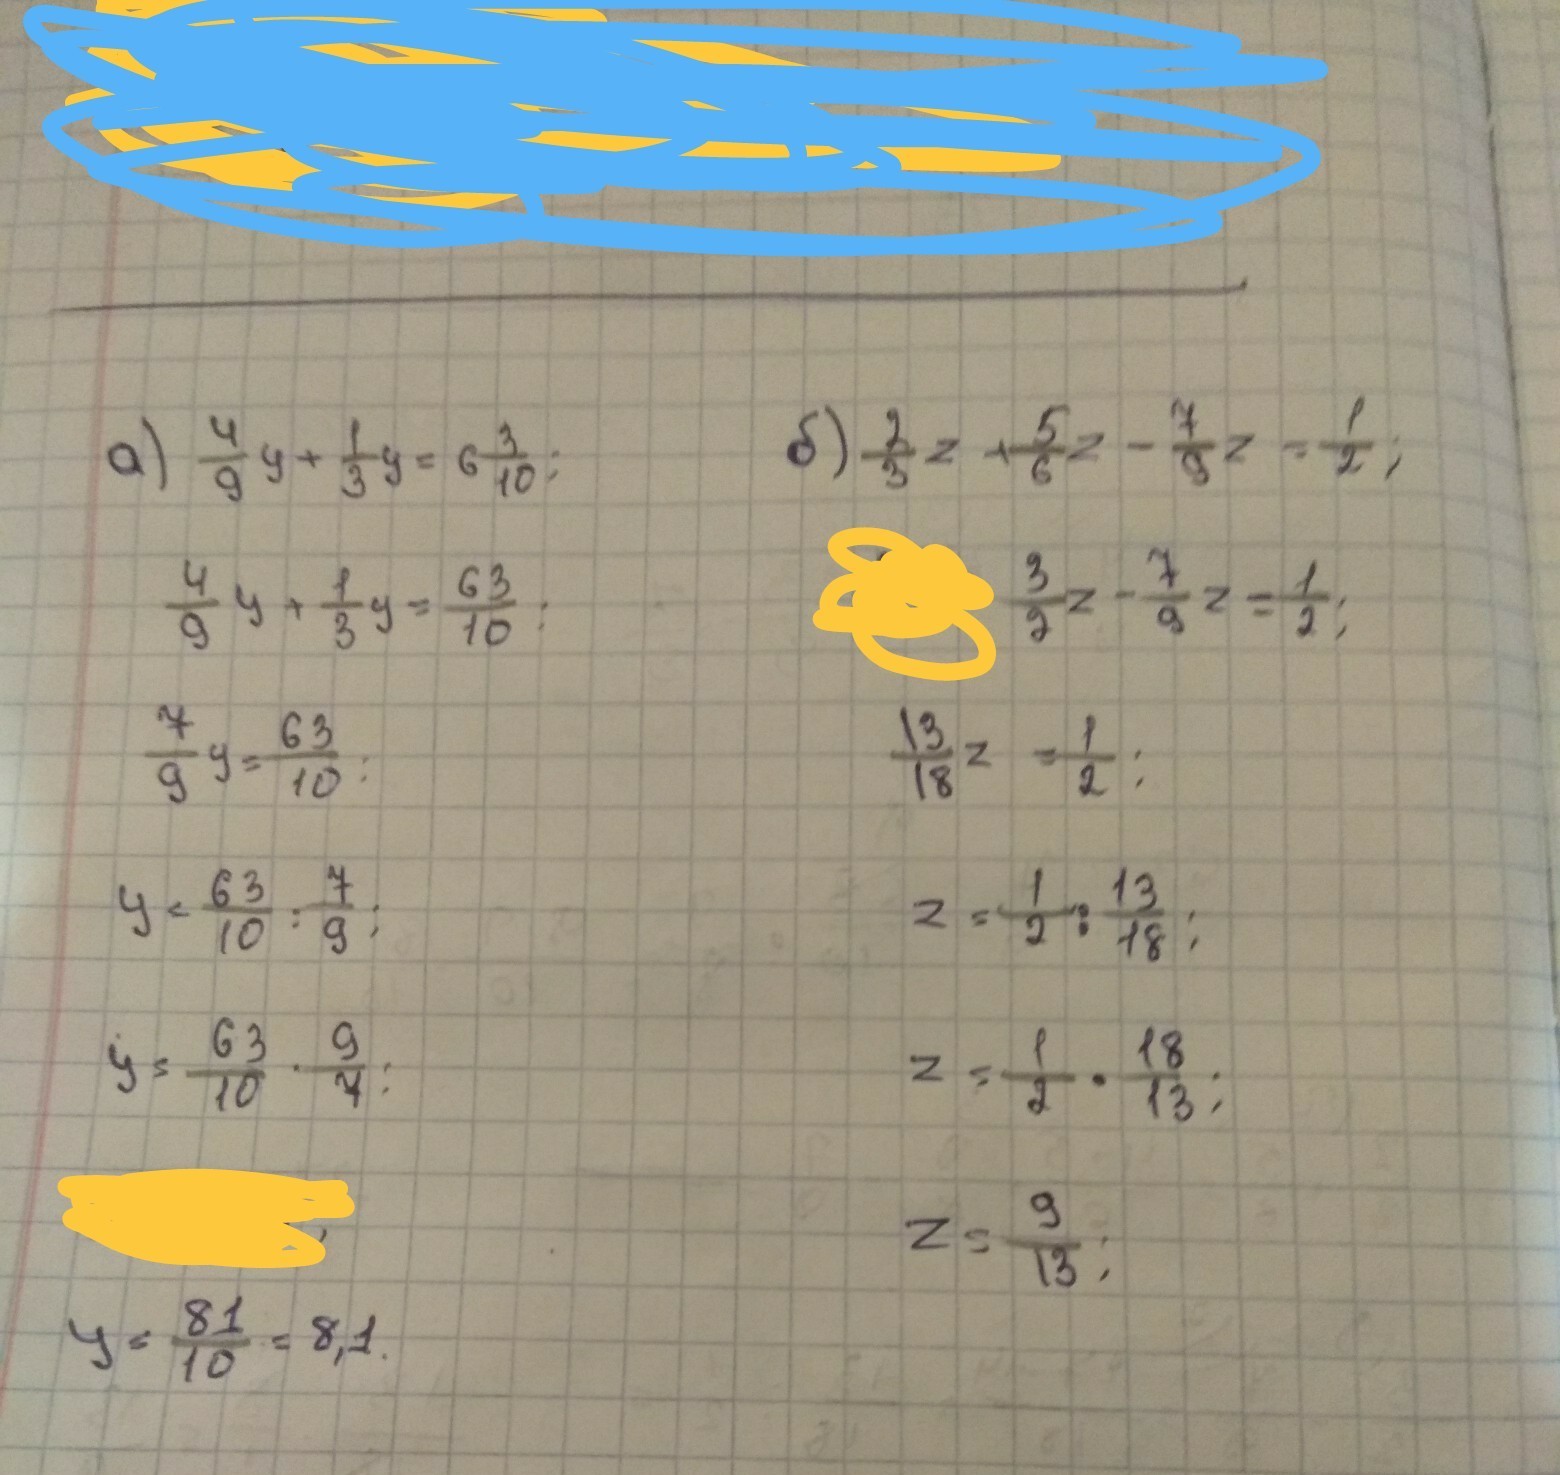 а) 4/9 y + 1/3 y = 6 3/10;
4/9 y + 1/3 y = 63/10;
7/9 y = 63/10;
y = 63/10 : 7/9;
y = 63/10 · 9/7;
y = 81/10 = 8,1.
б) 2/3 z + 5/6 z - 7/9 z = 1/2;
3/2 z - 7/9 z = 1/2;
13/18 z = 1/2;
z = 1/2 : 13/18;
z = 1/2 · 18/13;
z = 9/13;